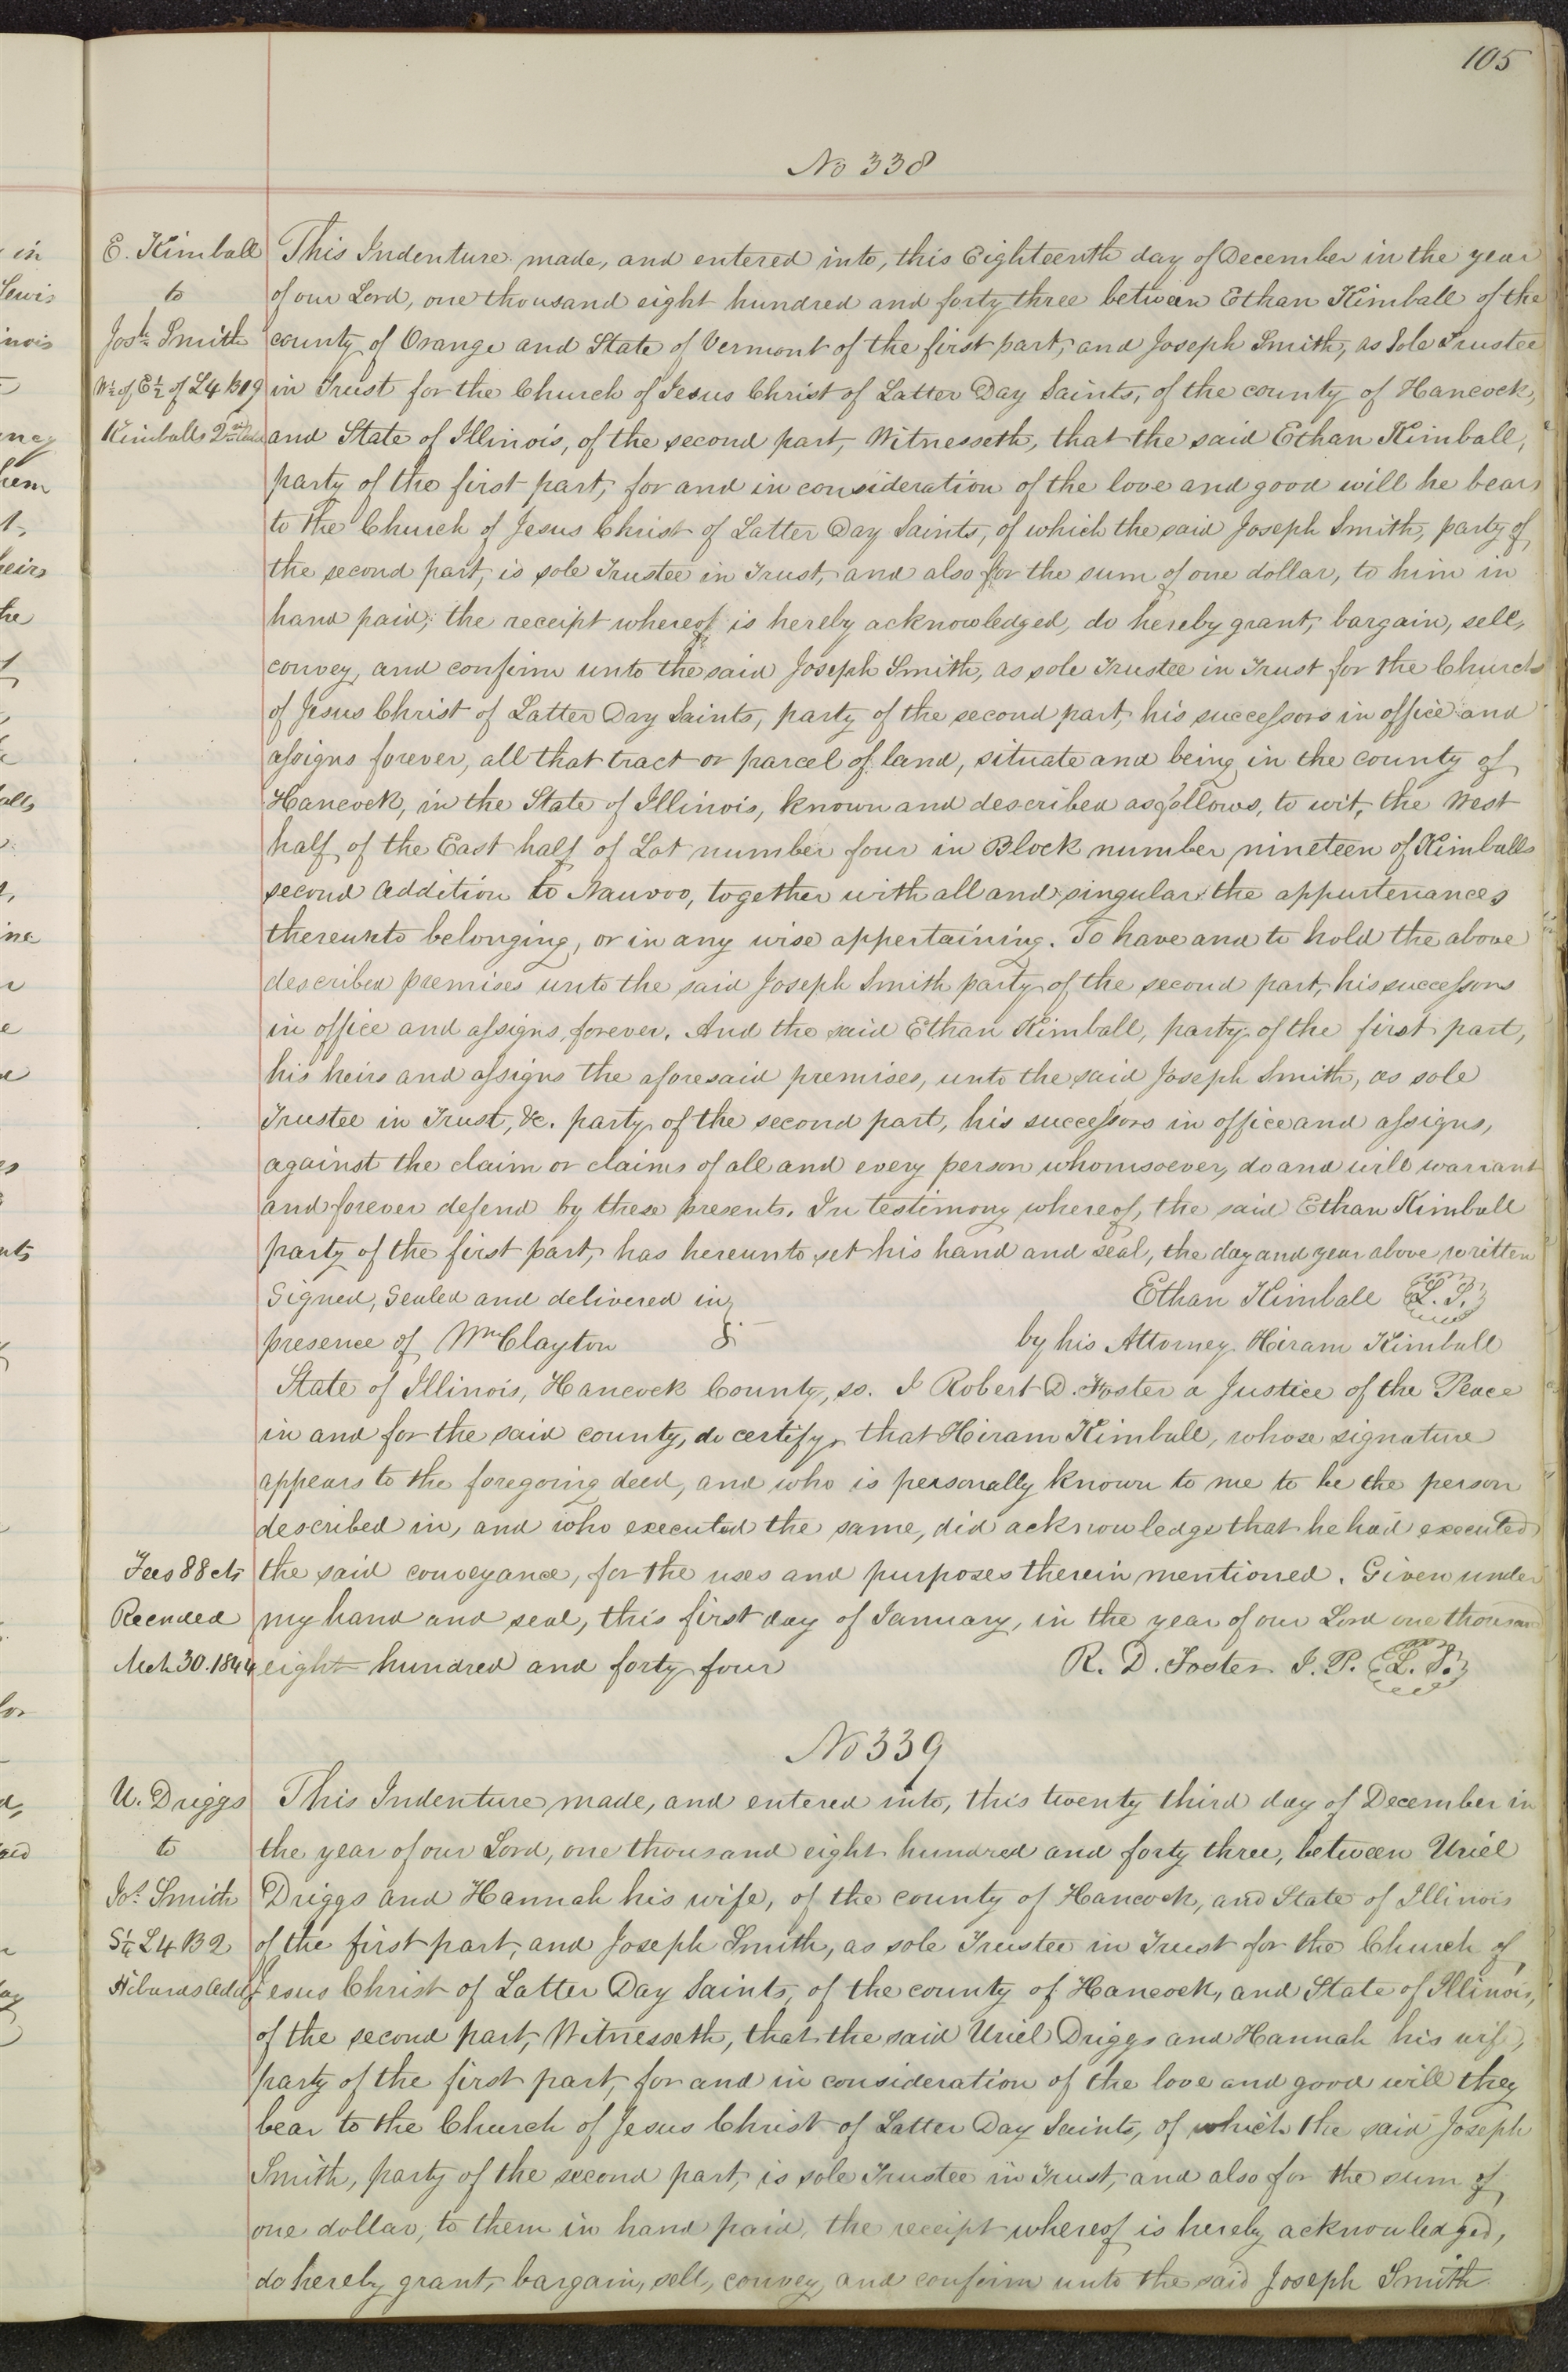 105
No 338
E. Kimball
to
Josh Smith
W½ of E½ of L4 B19
Kimballs 2nd
This Indenture made, and entered into, this Eighteenth day of December in the year
of our Lord, one thousand eight hundred and forty three between Ethan Kimball of the
county of Orange and State of Vermont of the first part, and Joseph Smith, as Sole Trustee
in Trust for the Church of Jesus Christ of Latter Day Saints, of the county of Hancock,
and State of Illinois, of the second part, Witnesseth, that the said Ethan Kimball,
party of the first part, for and in consideration of the love and good will he bears
to the Church of Jesus Christ of Latter Day Saints, of which the said Joseph Smith, party of
the second part, is sole Trustee in Trust, and also for the sum of one dollar, to him in
hand paid, the receipt whereof is hereby acknowledged, do hereby grant, bargain, sell,
convey, and confirm unto the said Joseph Smith, as sole Trustee in Trust for the Church
of Jesus Christ of Latter Day Saints, party of the second part, his successors in office and
assigns forever, all that tract or parcel of land, situate and being in the county of
Hancock, in the State of Illinois, known and described as follows, to wit, the West
half of the East half of Lot number four in Block number nineteen of Kimballs
second addition to Nauvoo, together with all and singular the appurtenances
thereunto belonging, or in any wise appertaining. To have and to hold the above
described premises unto the said Joseph Smith party of the second part, his successors
in office and assigns, forever. And the said Ethan Kimball, party of the first part,
his heirs and assigns the aforesaid premises, unto the said Joseph Smith, as sole
Trustee in Trust, &c. party of the second part, his successors in office and assigns,
against the claim or claims of all and every person whomsoever, do and will warrant
and forever defend by these presents. In testimony whereof, the said Ethan Kimball
party of the first part, has hereunto set his hand and seal, the day and year above written
Signed, Sealed and delivered in Ethan Kimball L. S.
presence of Wm Clayton by his Attorney Hiram Kimball
State of Illinois, Hancock County, ss. I Robert D. Foster a Justice of the Peace
in and for the said county, do certify, that Hiram Kimball, whose signature
appears to the foregoing deed, and who is personally known to me to be the person
described in, and who executed the same, did acknowledge that he had executed
the said conveyance, for the uses and purposes therein mentioned. Given under
my hand and seal, this first day of January, in the year of our Lord one thousand
eight hundred and forty four R. D. Foster J. P. L. S.
Fees 88 cts
Recorded
Mch 30. 1844
No 339
U. Driggs
to
Jos. Smith
S¼ L4 B2
Hibards Add
This Indenture made, and entered into, this twenty third day of December in
the year of our Lord, one thousand eight hundred and forty three, between Uriel
Driggs and Hannah his wife, of the county of Hancock, and State of Illinois
of the first part, and Joseph Smith, as sole Trustee in Trust for the Church of
Jesus Christ of Latter Day Saints, of the county of Hancock, and State of Illinois,
of the second part, Witnesseth, that the said Uriel Driggs and Hannah his wife,
party of the first part, for and in consideration of the love and good will they
bear to the Church of Jesus Christ of Latter Day Saints, of which the said Joseph
Smith, party of the second part, is sole Trustee in Trust, and also for the sum of
one dollar, to them in hand paid, the receipt whereof is hereby acknowledged,
do hereby grant, bargain, sell, convey, and confirm unto the said Joseph Smith